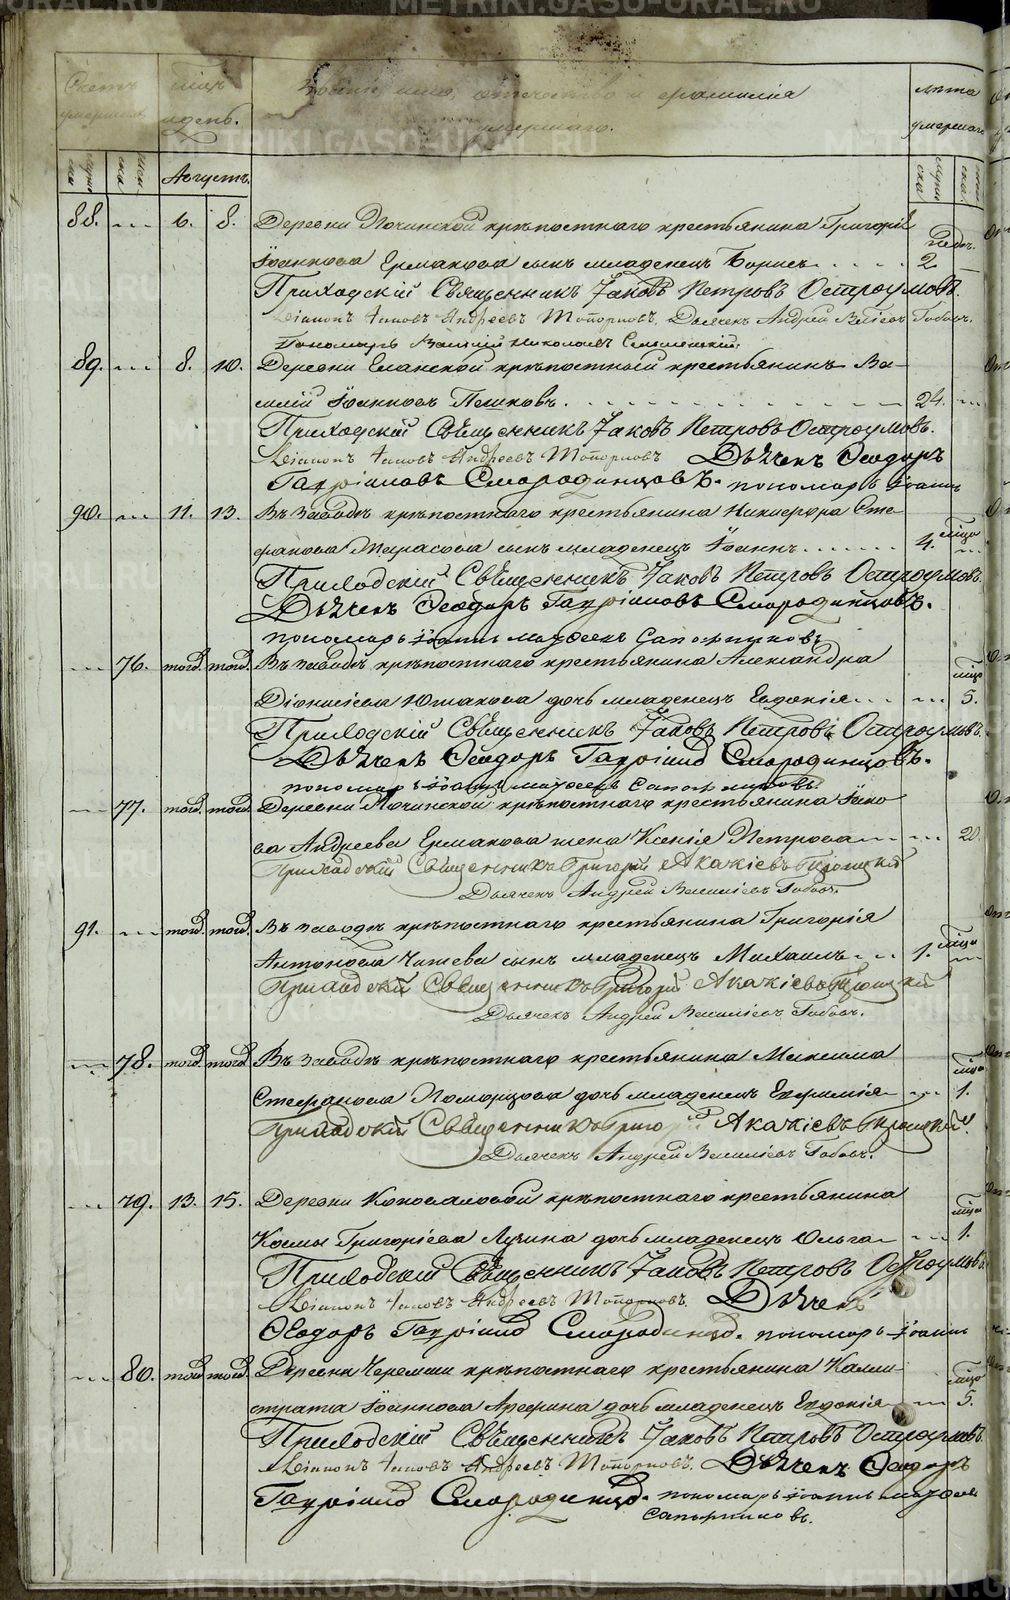 METRIKI.GASO-URAL.RU
Счетъ умершихъ
Мѣсяцъ и день.
Званіе, имя, отчество и фамилія умершаго.
Лѣта умершаго
Августъ.
88. — 6. 8. Деревни Починской крѣпостнаго крестьянина Григорія
Іоаннова Ермакова сынъ младенецъ Борисъ. 2 нед.
Приходскій Священникъ Іаковъ Петровъ Остроумовъ.
Діаконъ Іаковъ Андреевъ Топорковъ. Дьячекъ Андрей Василіевъ
Пономарь Василій Николаевъ
89. — 8. 10. Деревни Еланской крѣпостный крестьянинъ Ва-
силій Іоанновъ Пешковъ. 24. —
Приходскій Священникъ Іаковъ Петровъ Остроумовъ.
Діаконъ Іаковъ Андреевъ Топорковъ Дьячекъ Ѳеодоръ
Гавріиловъ Смородинцовъ. пономарь Іоаннъ
90. — 11. 13. Въ заводѣ крѣпостнаго крестьянина Никифора Сте-
фанова Тарасова сынъ младенецъ Іоаннъ. 4. мѣся —
Приходскій Священникъ Іаковъ Петровъ Остроумовъ.
Дьячекъ Ѳеодоръ Гавріиловъ Смородинцовъ.
пономарь Іоаннъ Матѳеевъ Сапожниковъ
— 76. тогд. тогд. Въ заводѣ крѣпостнаго крестьянина Александра
Діонисіева Юшакова дочь младенецъ Евдокія — мѣся 5.
Приходскій Священникъ Іаковъ Петровъ Остроумовъ.
Дьячекъ Ѳеодоръ Гавріилов Смородинцовъ.
пономарь Іоаннъ Матѳеевъ Сапожниковъ
— 77. тогд. тогд. Деревни Починской крѣпостнаго крестьянина Іако-
ва Андреева Ермакова жена Ксенія Петрова — 20
Приходскій Священникъ Григорій Акакіевъ
Дьячекъ Андрей Василіевъ
91. — тогд. тогд. Въ заводѣ крѣпостнаго крестьянина Григорія
Антонова сынъ младенецъ Михаилъ 1. мѣся —
Приходскій Священникъ Григорій Акакіевъ
Дьячекъ Андрей Василіевъ
— 78. тогд. тогд. Въ заводѣ крѣпостнаго крестьянина Максима
Стефанова Поморцова дочь младенецъ Евфимія — мѣся 1.
Приходскій Священникъ Григорій Акакіевъ
Дьячекъ Андрей Василіевъ
— 79. 13. 15. Деревни крѣпостнаго крестьянина
Космы Григоріева Лузина дочь младенецъ Ольга — мѣся 1.
Приходскій Священникъ Іаковъ Петровъ Остроумовъ.
Діаконъ Іаковъ Андреевъ Топорковъ. Дьячекъ
Ѳеодоръ Гавріилов Смородинцов. пономарь Іоаннъ
— 80. тогд. тогд. Деревни Черемши крѣпостнаго крестьянина Калли-
страта Іоаннова Арефина дочь младенецъ Евдокія — мѣся 5.
Приходскій Священникъ Іаковъ Петровъ Остроумовъ.
Діаконъ Іаковъ Андреевъ Топорковъ. Дьячекъ Ѳеодоръ
Гавріилов Смородинцов. пономарь Іоаннъ Матѳеевъ
Сапожниковъ.